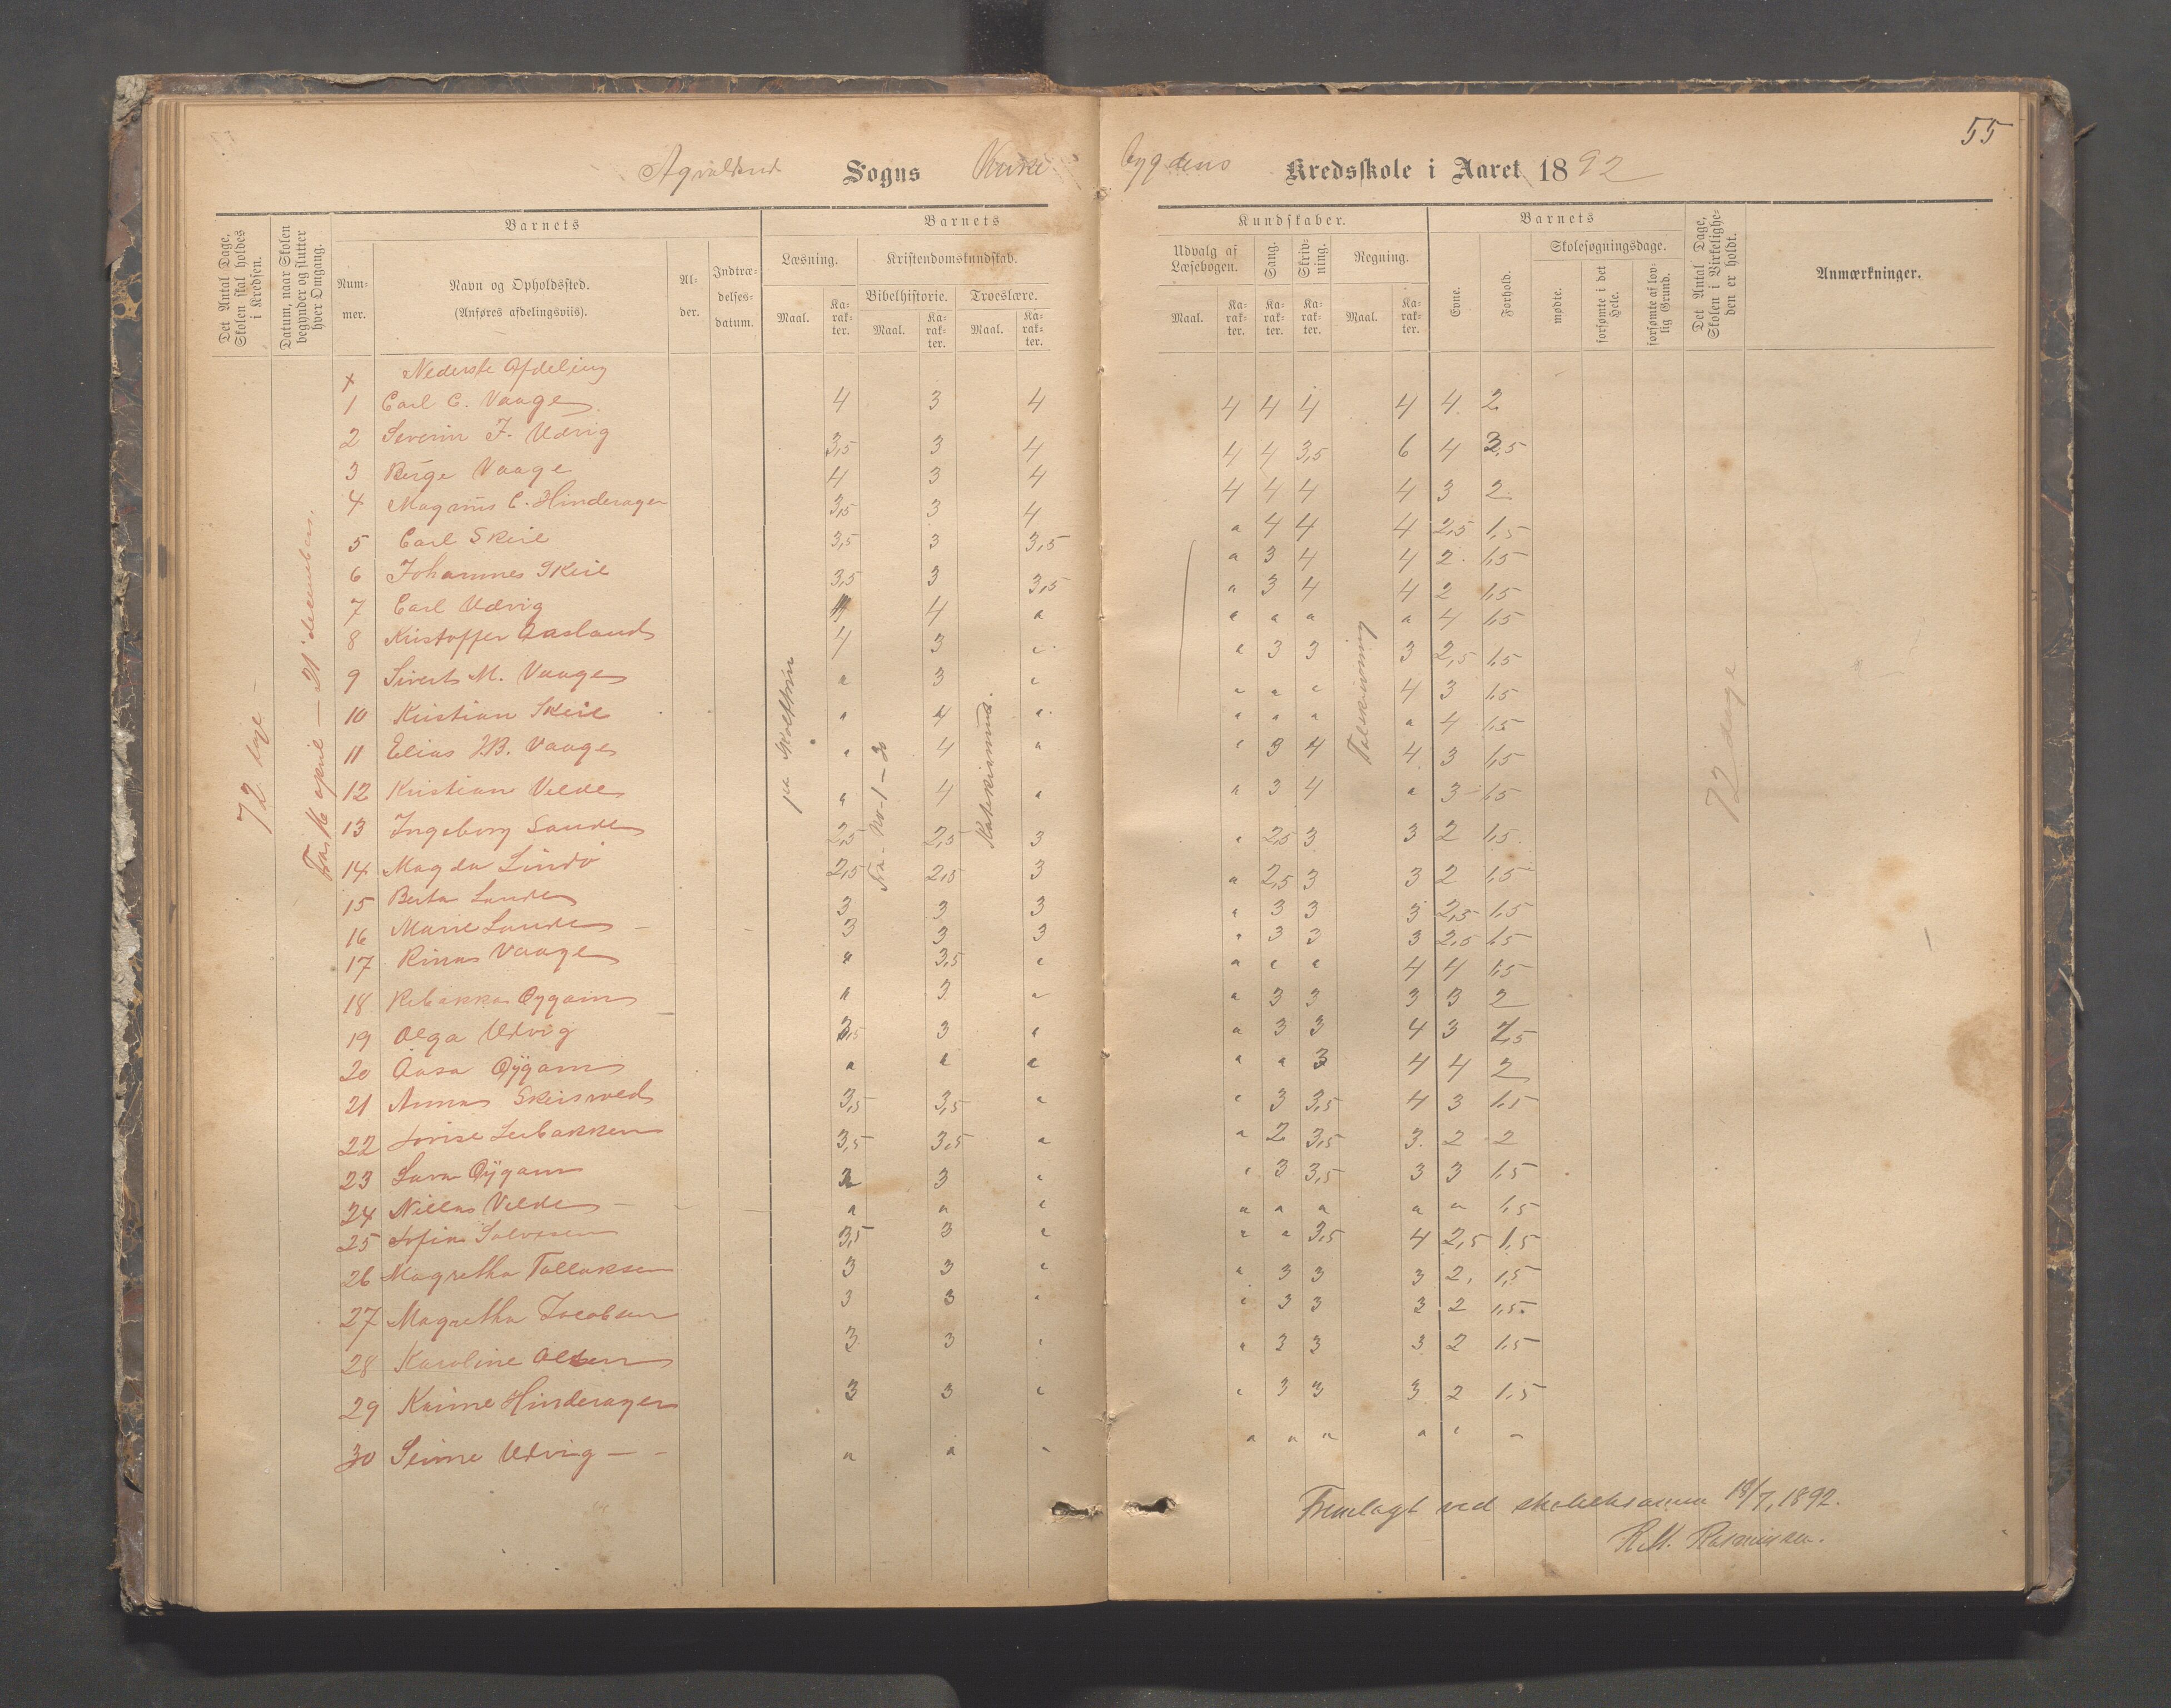 55
Sogns
bygdens Kredsskole i Aaret 1892
Det Antal Dage, Skolen skal holdes i Kredsen.
Datum, naar Skolen begynder og slutter hver Omgang.
Barnets
Nummer.
Navn og Opholdssted.
(Anføres afdelingsviis).
Alder.
Indtrædelsesdatum.
Barnets
Læsning.
Maal.
Karakter.
Kristendomskundskab.
Bibelhistorie.
Maal.
Karakter.
Troeslære.
Maal.
Karakter.
Kundskaber.
Udvalg af Læsebogen.
Maal.
Karakter.
Sang.
Karakter.
Skrivning.
Karakter.
Regning.
Maal.
Karakter.
Barnets
Evne.
Forhold.
Skolesøgningsdage.
mødte.
forsømte i det Hele.
forsømte af lovlig Grund.
Det Antal Dage, Skolen i Virkeligheden er holdt.
Anmærkninger.
72 dage
april – 21 december.
Fra No 1 – 20
72 dage
x Nederste Afdeling
1 Carl C. Vaage 4 3 4 4 4 4 4 4 2
2 Severin J. Udvig 3,5 3 4 4 4 3,5 6 4 3,5
3 Berge Vaage 4 3 4 4 4 4 4 3 2
4 Magnus C. Hinderager 3,5 3 4 " 4 4 4 2,5 1,5
5 Carl Skeie 3,5 3 3,5 " 3 4 4 2 1,5
6 Johannes Skeie 3,5 3 3,5 " 3 4 4 2 1,5
7 Carl Udvig 4 4 " " " " " 4 1,5
8 Kristoffer Aasland 4 3 " " 3 3 3 2,5 1,5
9 Sivert M. Vaage " 3 " " " " 4 3 1,5
10 Kristian Skeie " 4 " " " " " 4 1,5
11 Elias B. Vaage " 4 " " 3 4 4 3 1,5
12 Kristian Velde " 4 " " 3 4 " 3 1,5
13 Ingeborg Sande 2,5 2,5 3 " 2,5 3 3 2 1,5
14 Magda Lindø 2,5 2,5 3 " 2,5 3 3 2 1,5
15 Berta Sande 3 3 3 " 3 3 3 2,5 1,5
16 Marie Sande 3 3 3 " 3 3 3 2,5 1,5
17 Rina Vaage " 3,5 " " " " 4 4 1,5
18 Rebakka Øygarn " 3 " " 3 3 3 3 2
19 Olga Udvig 3,5 3 " " 3 3 4 3 2,5
20 Aasa Øygarn " " " " " 3 4 4 2
21 Anna Skeisvoed 3,5 3,5 " " 3 3,5 4 3 1,5
22 Lovise Leebakken 3,5 3,5 " " 2 3,5 3 2 2
23 Sara Øygarn 3 3 " " 3 3,5 3 3 1,5
24 Nilla Velde " " " " " " " " 1,5
25 Sofia Salvesen 3,5 3 " " " 3,5 4 2,5 1,5
26 Magretha Tollaksen 3 3 " " 3 3 3 2 1,5
27 Magretha Jacobsen 3 3 " " 3 3 3 2 1,5
28 Karoline Olsen 3 3 " " 3 3 3 2 1,5
29 Karine Hinderager 3 3 " " 3 3 3 2 1,5
30 Seine Udvig " " " " " " " " "
Fremlagt ved skoleeksamen 18/7, 1892.
R. M. Rasmussen.